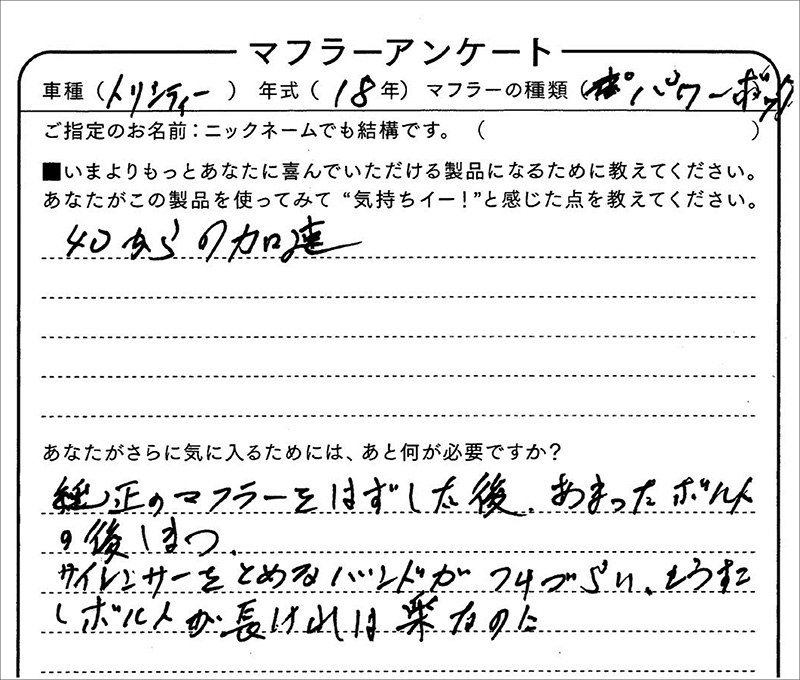 マフラーアンケート
車種（トリシティー） 年式（18年） マフラーの種類（パワーボックス
ご指定のお名前：ニックネームでも結構です。（ ）
■いまよりもっとあなたに喜んでいただける製品になるために教えてください。
あなたがこの製品を使ってみて“気持ちイー！”と感じた点を教えてください。
40からの加速
あなたがさらに気に入るためには、あと何が必要ですか？
純正のマフラーをはずした後、あまったボルト
の後しまつ、
サイレンサーをとめるバンドがつけづらい、もうすこ
しボルトが長ければ楽なのに